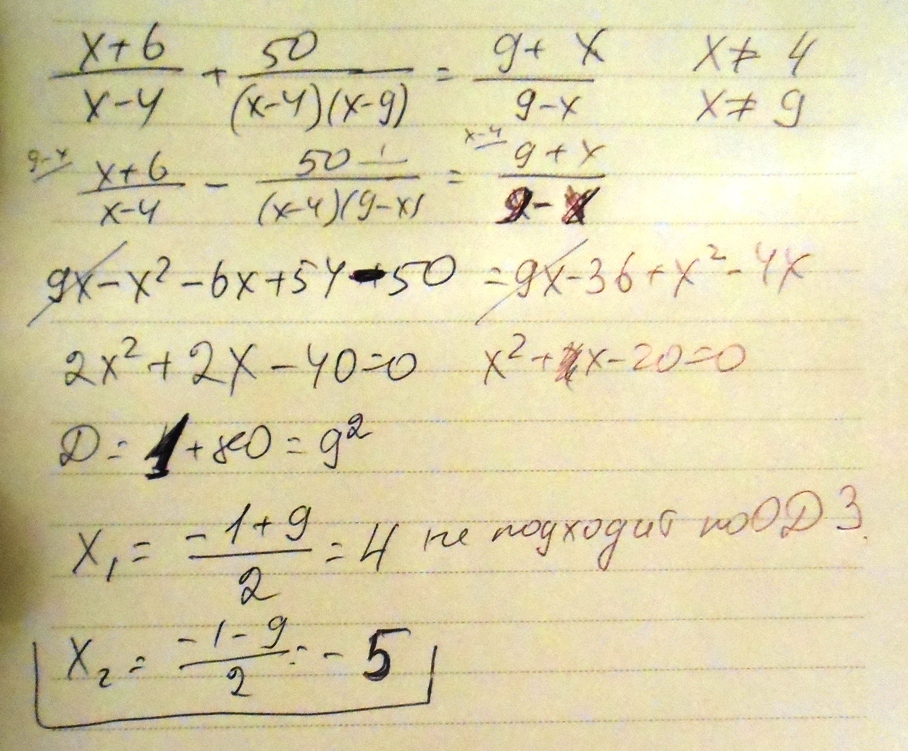 (x+6)/(x-4) + 50/((x-4)(x-9)) = (9+x)/(9-x) x≠4 x≠9
9-x/ (x+6)/(x-4) - 50/((x-4)(9-x)) = x-4/ (9+x)/(9-x)
9x-x²-6x+54-50 = 9x-36+x²-4x
2x²+2x-40=0 x²+x-20=0
D=1+80=9²
x₁=(-1+9)/2=4 не подходит по ОДЗ.
x₂=(-1-9)/2=-5